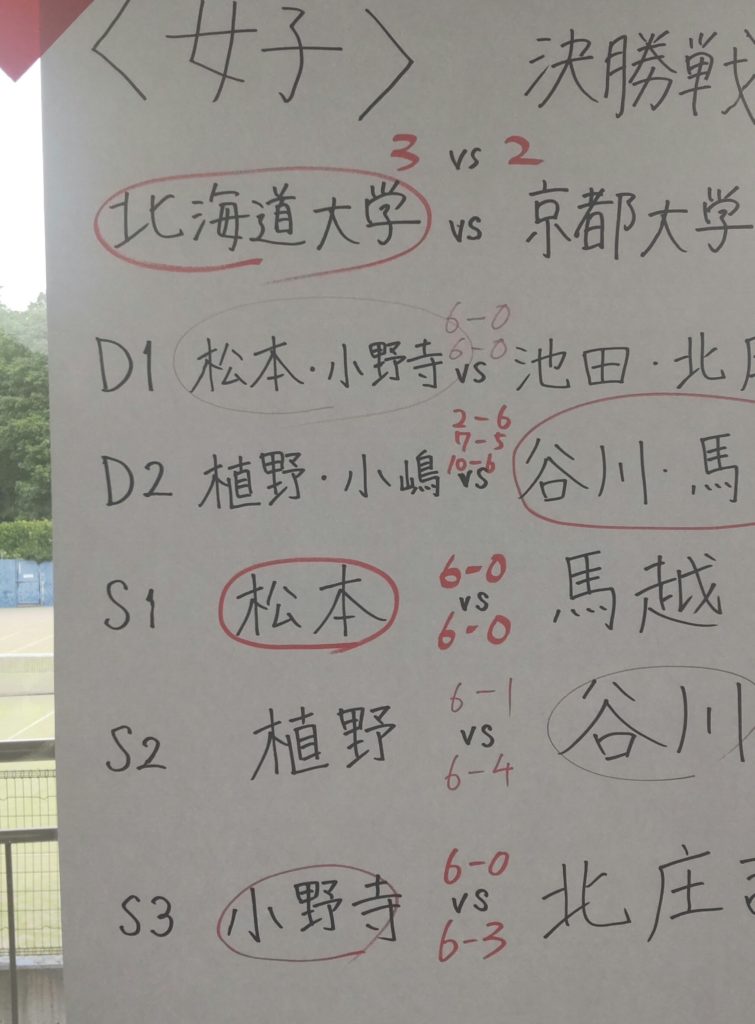 〈女子〉 決勝戦
3 vs 2
北海道大学 vs 京都大学
6-0
D1 松本・小野寺 vs 池田・北
6-0
2-6
7-5
10-6
D2 植野・小嶋 vs 谷川・馬
6-0
S1 松本 vs 馬越
6-0
6-1
S2 植野 vs 谷川
6-4
6-0
S3 小野寺 vs 北庄
6-3